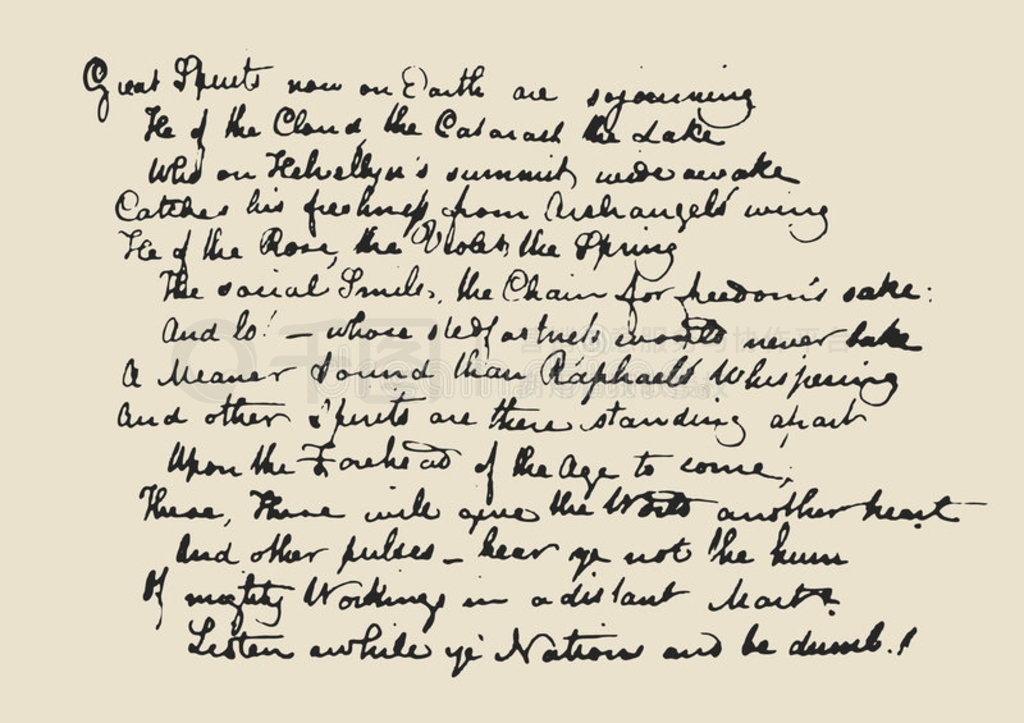 Great Spirits now on Earth are sojourning
He of the Cloud, the Cataract the Lake
Who on Helvellyn's summit, wide awake
Catches his freshness from Archangel's wing
He of the Rose, the Violet, the Spring
The social Smile, the Chain for freedom's sake:
And lo! — whose stedfastness would never take
A Meaner Sound than Raphael's Whispering
And other Spirits are there standing apart
Upon the Forehead of the Age to come;
These, These will give the World another heart
And other pulses — hear ye not the hum
Of mighty Workings in a distant Mart?
Listen awhile ye Nations and be dumb.!